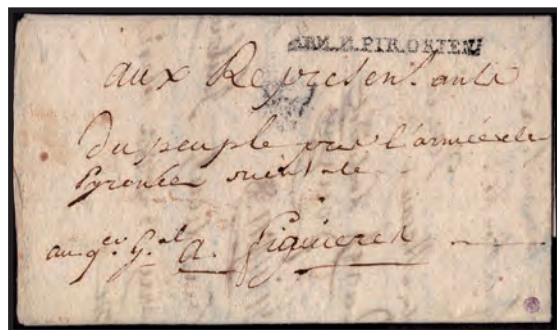 ARM. D. PIR. ORIEN.
aux Representants
du peuple pres l'armée de
Pyrenées orientale
au q.er G.al a. figuieres